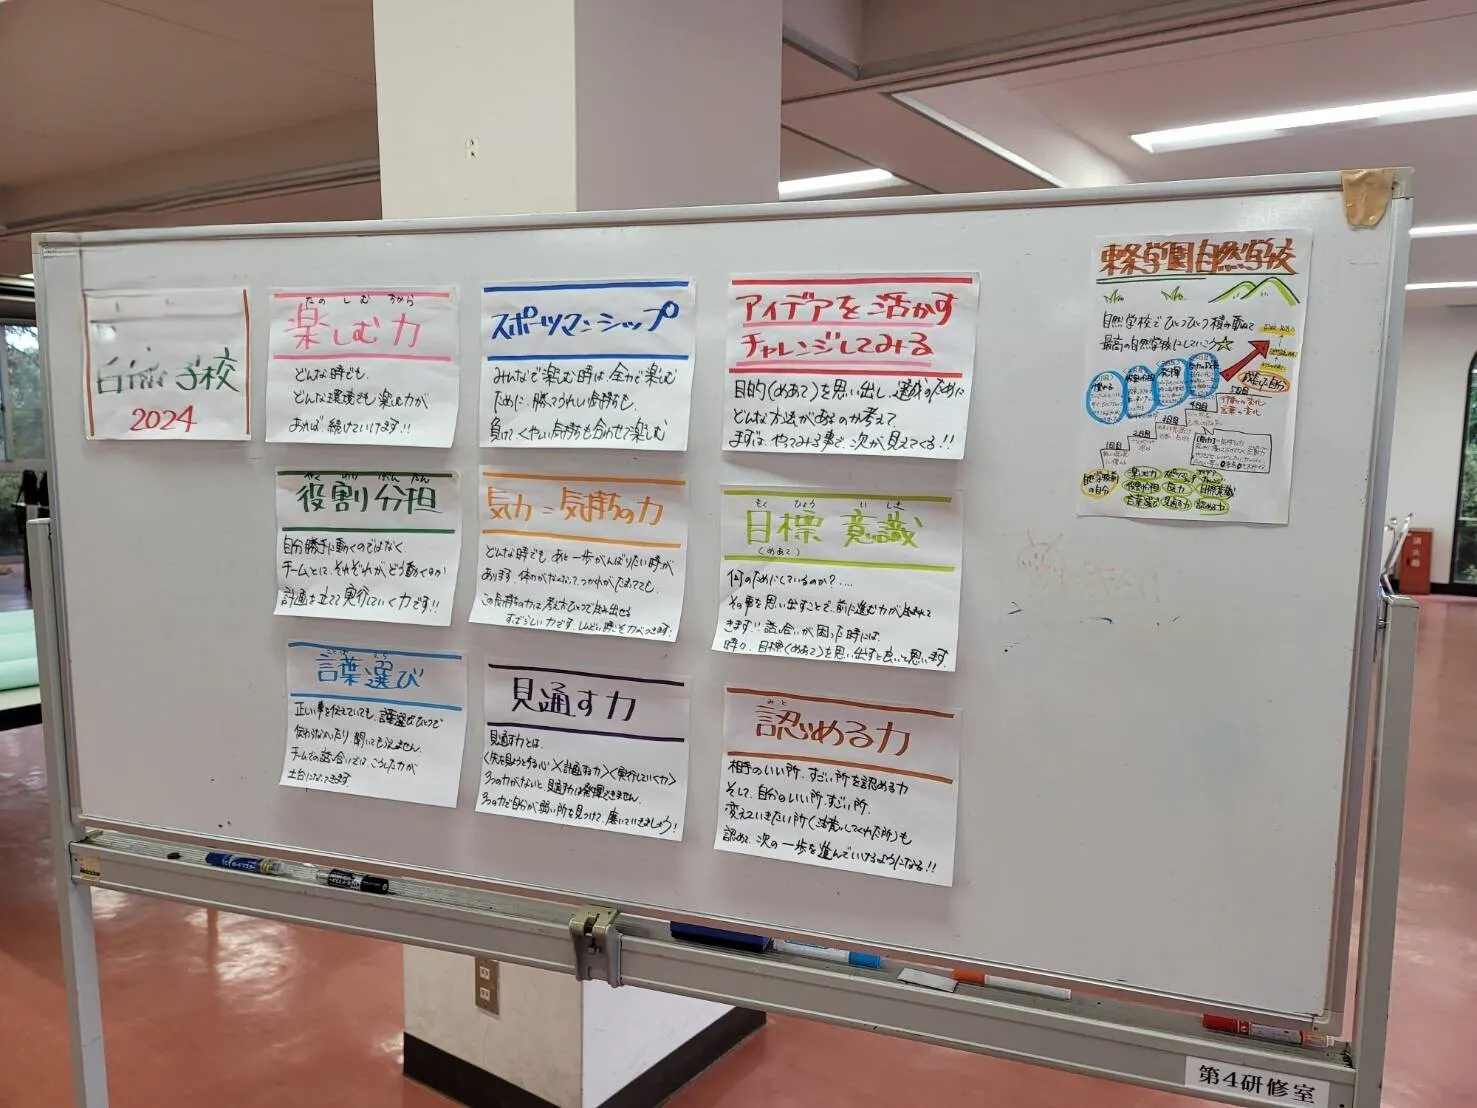 自然学校
2024
たの しむ ちから
楽しむ力
どんな時でも、
どんな環境でも楽しむ力が
あれば、続けていけます!!
スポーツマンシップ
みんなで楽しむ時は、全力で楽しむ
ために、勝てうれしい気持ちも、
負けて、くやしい気持ちも合わせて楽しむ
アイデアを活かす
チャレンジしてみる
目的(めあて)を思い出し、達成のために
どんな方法があるのか考えて
まずは、やってみる事で、次が見えてくる!!
やく わり ぶん たん
役割分担
自分勝手に動くのではなく、
チームとして、それぞれが、どう動くのか
計画を立てて実行していく力です!!
気力=気持ちの力
どんな時でも、あと一歩がんばりたい時が
あります。体力がなくなって、つかれがたまてても、
この気持ちの力は、考え方ひとつで生み出せる
すばらしい力です。しんどい時こそ力がつきます!
もく ひょう い しき
目標意識
(めあて)
何のためにしているのか?....
その事を思い出すことで、前に進む力が生まれて
きます!!話し合いが困った時には、
時々、目標(めあて)を思い出すと良いと思います。
ことば えら
言葉選び
正しい事を伝えていても、言葉選びひとつで
伝わらなかったり、聞いてもらえません。
チームでの話し合いでは、こうした力が
土台になってきます。
見通す力
見通す力とは、
〈先を見ようとする心〉×〈計画する力〉×〈実行していく力〉
3つの力がないと、見通す力は発揮できません。
3つの力で自分が、弱い所を見つけて、磨いていきましょう!
みと
認める力
相手のいい所、すごい所を認める力
そして、自分のいい所、すごい所、
変えていきたい所(注意してくれた所)も
認めて、次の一歩を進んでいけるようになる!!
東条学園自然学校
自然学校でひとつひとつ積み重ねて
最高の自然学校にしていこう☆
成長した自分
5日目
行動の変化
言葉の変化
4日目
3日目
2日目
1日目
自然学校前
の自分
楽しむ力
役割分担
気力
目標意識
言葉選び
見通す力
認める力
消火器
第4研修室